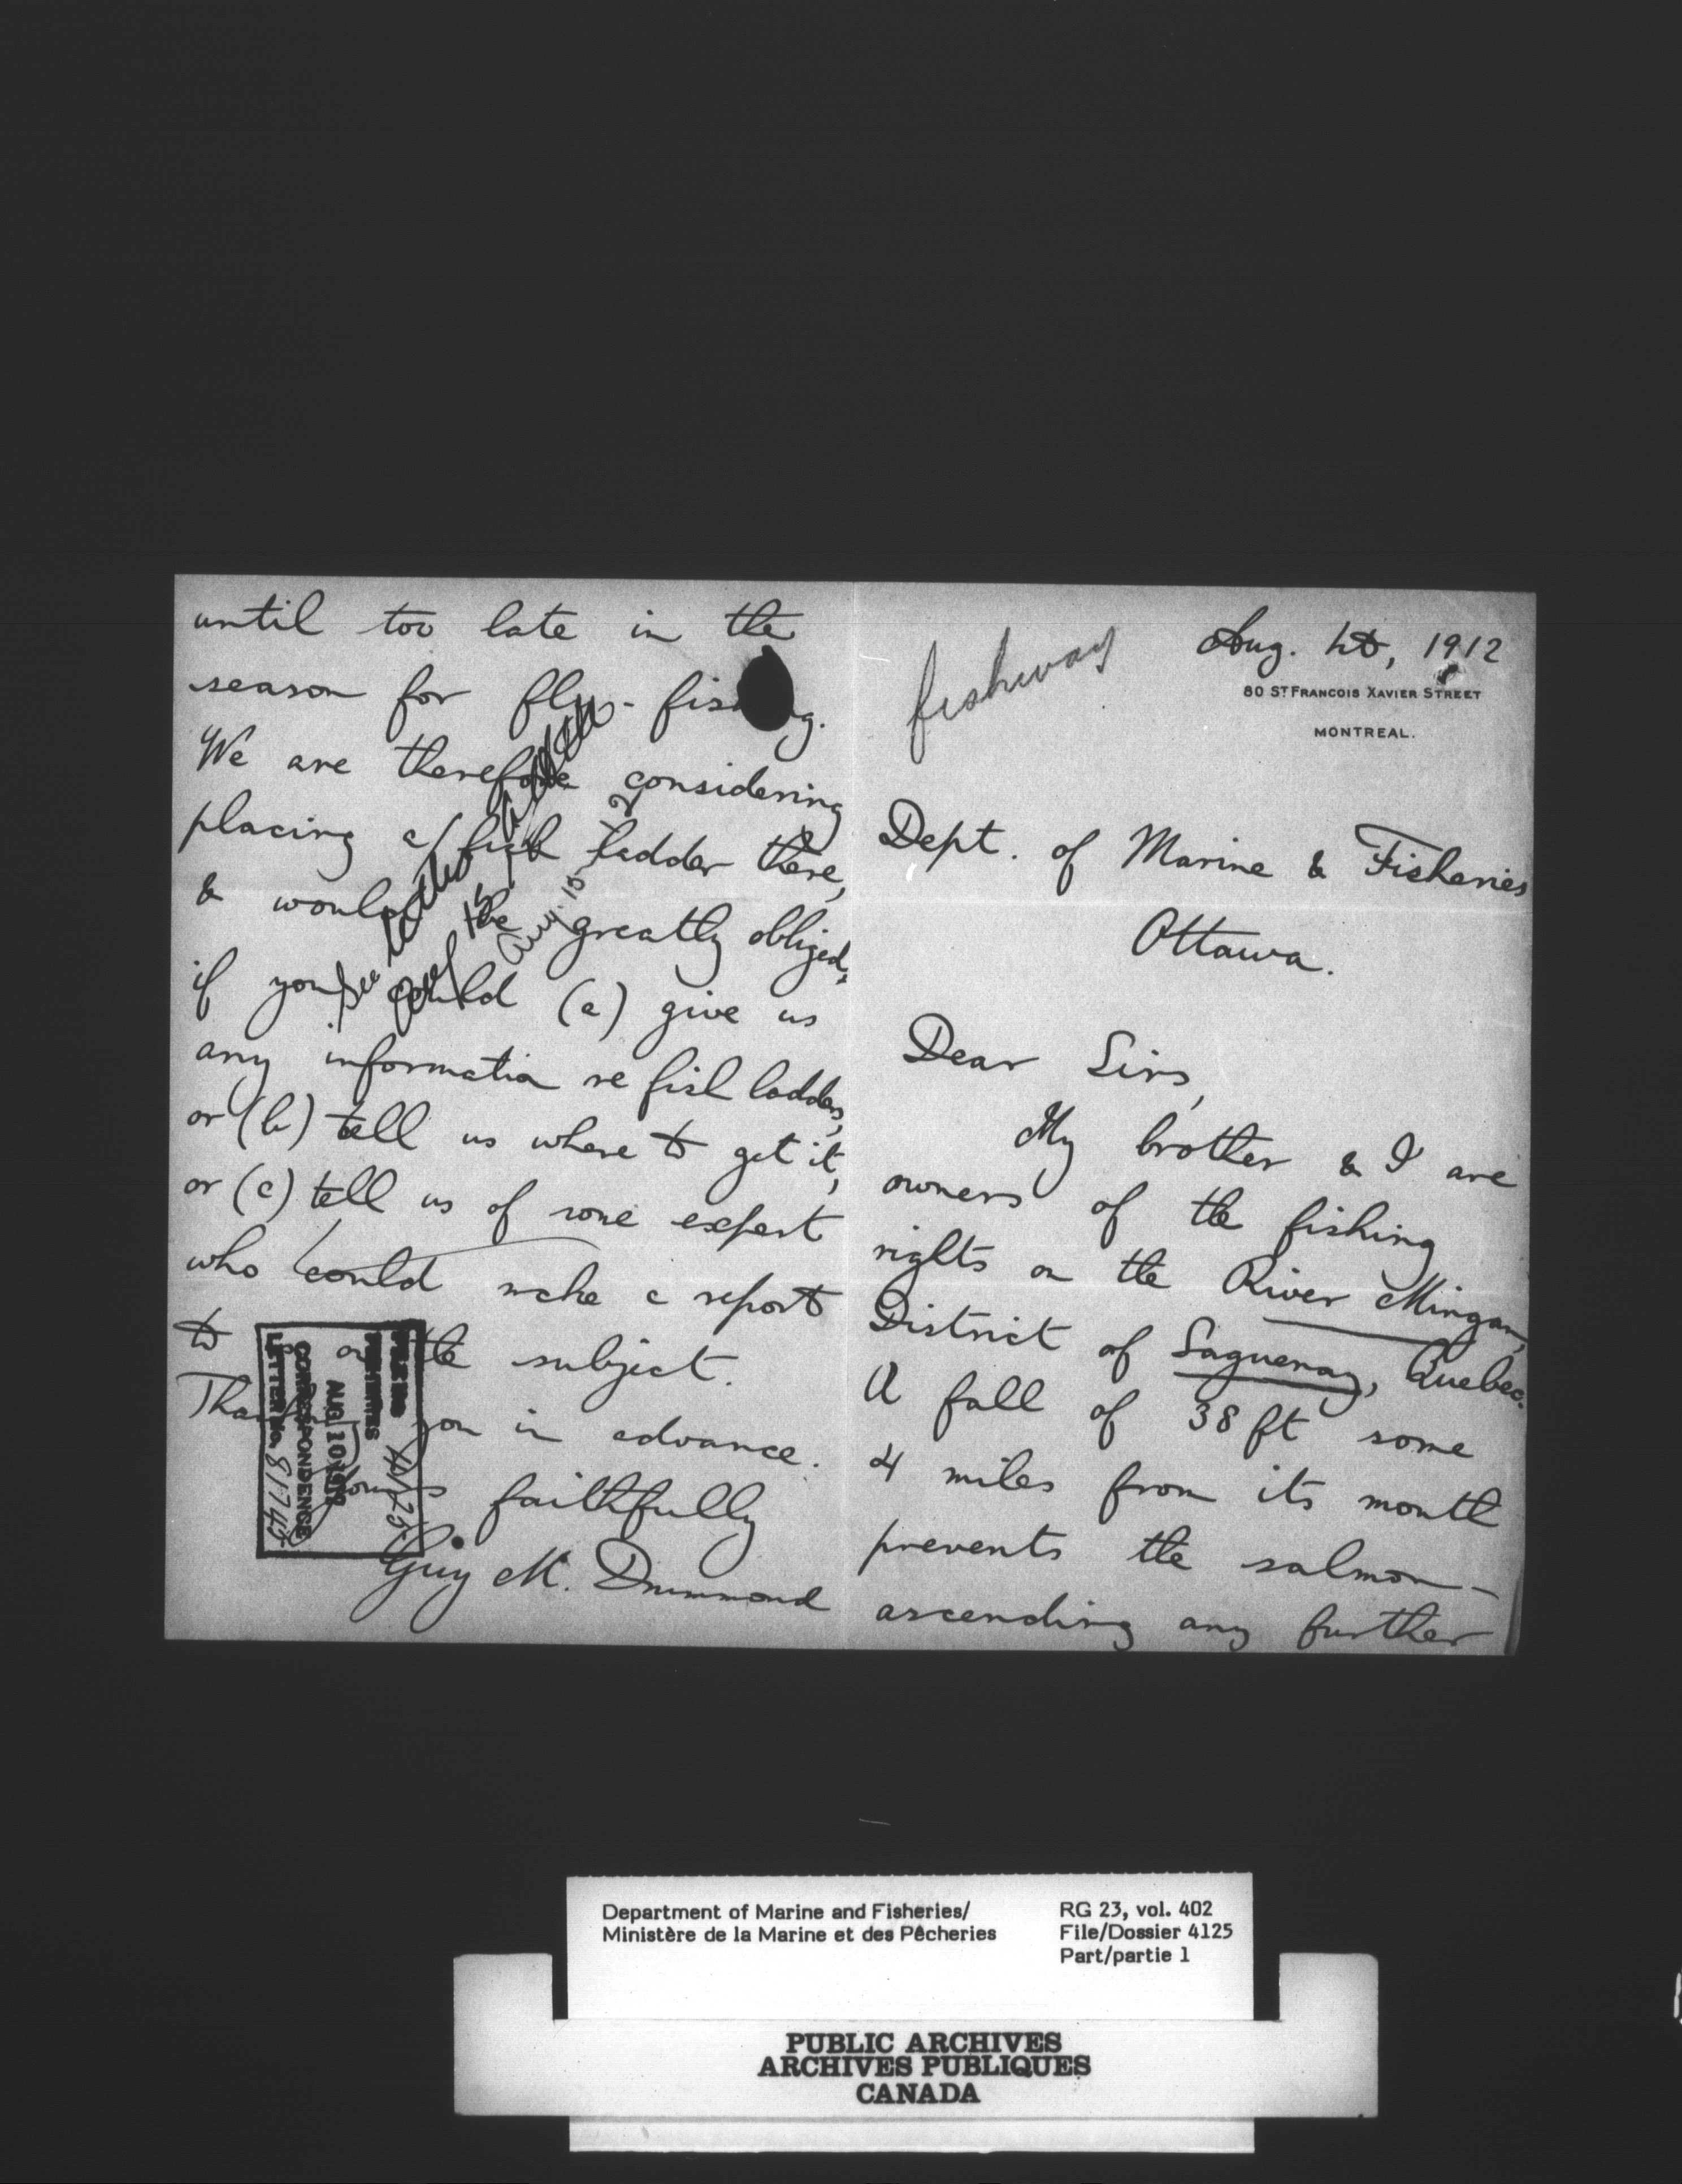 fishway
Aug. , 1912
80 ST FRANCOIS XAVIER STREET
MONTREAL.
Dept. of Marine & Fisheries
Ottawa.
Dear Sirs,
My brother & I are
owners of the fishing
rights on the River Mingan,
District of Saguenay, Quebec.
A fall of 38 ft some
4 miles from its mouth
prevents the salmon
ascending any further
until too late in the
season for fly-fishing.
We are therefore considering
placing a fish ladder there,
& would be greatly obliged,
if you could (a) give us
any information re fish ladders,
or (b) tell us where to get it,
or (c) tell us of some expert
who could make a report
to on the subject.
Thanking you in advance.
Yours faithfully
Guy M. Drummond
Aug. 15
FILE No. 4125
FISHERIES
AUG 10 1912
CORRESPONDENCE
LETTER No. 81745
Department of Marine and Fisheries/
Ministère de la Marine et des Pêcheries
RG 23, vol. 402
File/Dossier 4125
Part/partie 1
PUBLIC ARCHIVES
ARCHIVES PUBLIQUES
CANADA